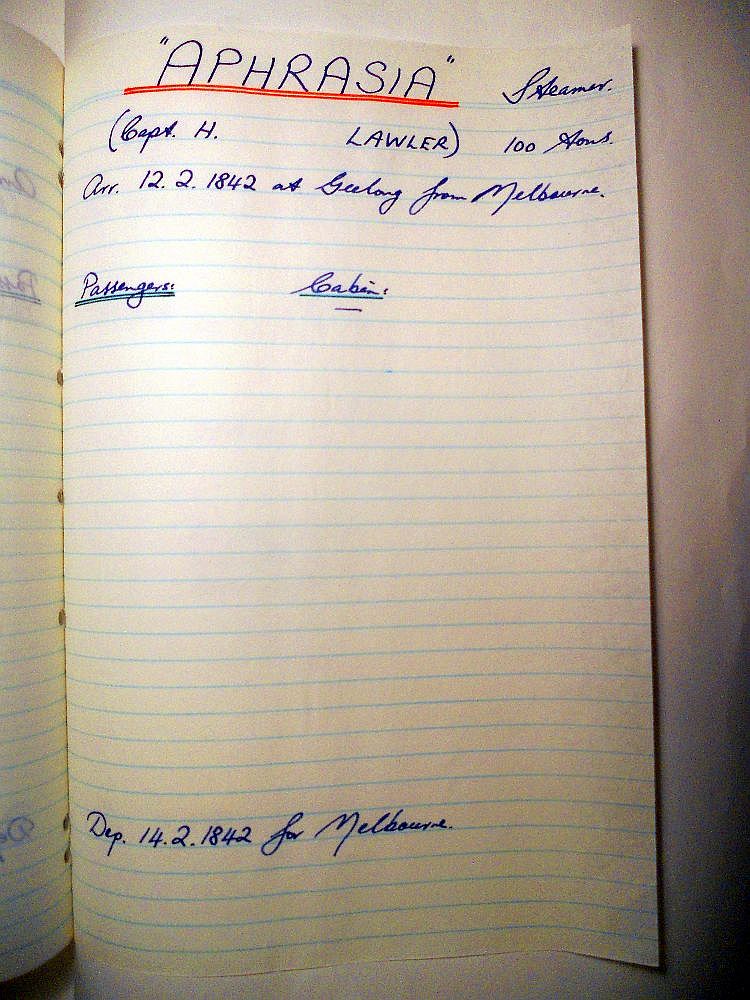 "APHRASIA" Steamer.
(Capt. H. LAWLER) 100 Tons.
Arr. 12.2.1842 at Geelong from Melbourne.
Passengers: Cabin:
Dep. 14.2.1842 for Melbourne.